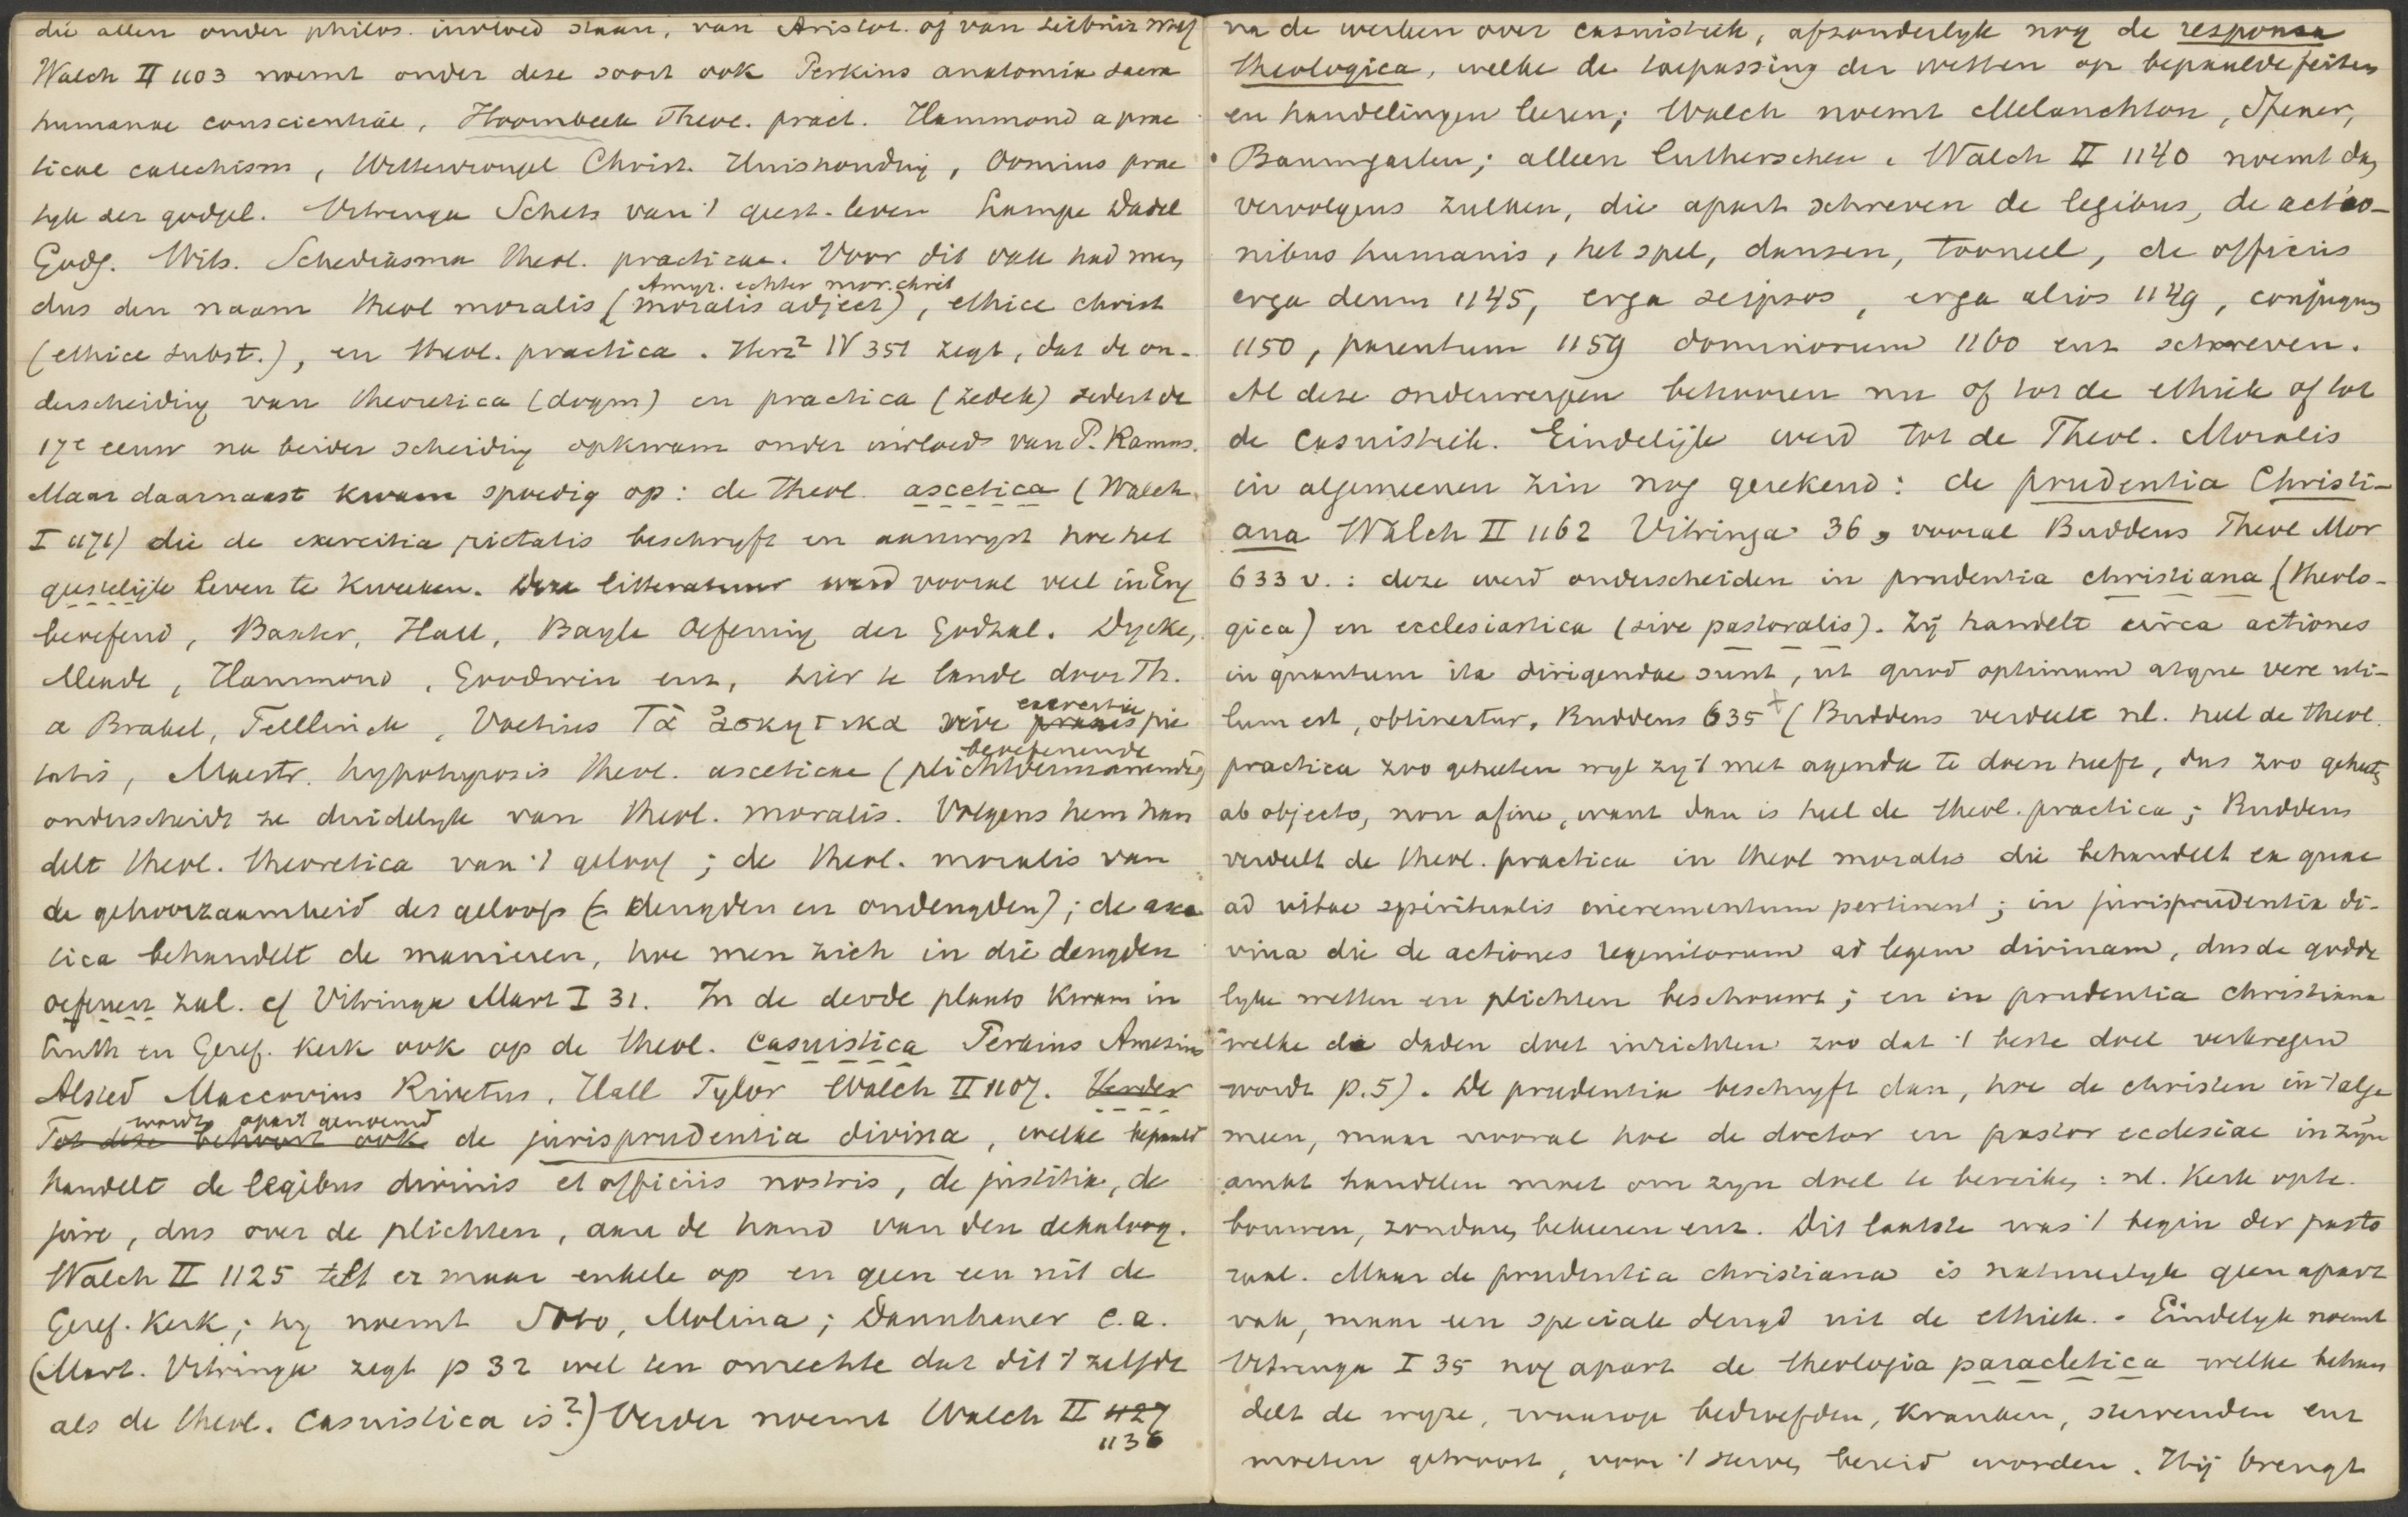 die allen onder philos. invloed staan, van Aristot. of van Leibniz Wolf
Walch II 1103 noemt onder deze soort ook Perkins anatomia sacra
humanae conscientiae, Hoornbeek Theol. pract. Hammond a prac
tical catechism, Wittewrongel Christ. Huishoudig, Oomius prac
tyk der godgel. Vitringa Schets van 't geest. leven Lampe Dadel
Godg. Wits. Schediasma theol. practicae. Voor dit vak had men
Amyr. echter mor. chret
dus den naam theol moralis (moralis adject), ethice christ
(ethice subst.), en theol. practica. Herz² IV 351 zegt, dat de on-
derscheidig van theoretica (dogm) en practica (zedek) sedert de
17e eeuw na beider scheidig opkwam onder invloed van P. Ramus.
Maar daarnaast kwam spoedig op: de theol. ascetica (Walch
I 1171) die de exercitia pietatis beschryft en aanwyst hoe het
geestelijk leven te kweeken. Deze litteratuur werd vooral veel in Eng
beoefend, Baxter, Hall, Bayle Oefening der Godzal. Dycke,
Meade, Hammond, Goodwin enz, hier te lande door Th.
exercitia
a Brakel, Tellinck, Voetius Τὰ ἀσκητικα sive praxis pie
beoefenende
tatis, Maestr. hypotyposis theol. asceticae (plichtvermanende)
onderscheidt ze duidelyk van theol. moralis. Volgens hem han
delt theol. theoretica van 't geloof; de theol. moralis van
de gehoorzaamheid des geloofs (= deugden en ondeugden); de asce
tica behandelt de manieren, hoe men zich in die deugden
oefenen zal. cf Vitringa Mart I 31. In de derde plaats kwam in
Luth en Geref. Kerk ook op de theol. casuistica Perkins Amesius
Alsted Maccovius Rivetus, Hall Tylor Walch II 1107. Verder
wordt apart genoemd
Tot deze behoort ook de jurisprudentia divina, welke bepaald
handelt de legibus divinis et officiis nostris, de justitia, de
jure, dus over de plichten, aan de hand van den dekaloog.
Walch II 1125 telt er maar enkele op en geen een uit de
Geref. Kerk; hy noemt Soto, Molina; Dannhauer e.a.
(Mart. Vitringa zegt p 32 wel ten onrechte dat dit 't zelfde
als de theol. casuistica is?) Verder noemt Walch II 1127
1136
na de werken over casuistiek, afzonderlyk nog de responsa
theologica, welke de toepassing der wetten op bepaalde feiten
en handelingen leeren; Walch noemt Melanchton, Spener,
Baumgarten; alleen Lutherschen. Walch II 1140 noemt dan
vervolgens zulken, die apart schreven de legibus, de actio-
nibus humanis, het spel, dansen, tooneel, de officiis
erga deum 1145, erga seipsos, erga alios 1149, conjugum
1150, parentum 1159 dominorum 1160 enz schreven.
Al deze onderwerpen behooren nu of tot de ethiek of tot
de casuistiek. Eindelijk werd tot de Theol. Moralis
in algemeenen zin nog gerekend: de prudentia Christi-
ana Walch II 1162 Vitringa 36, vooral Buddeus Theol Mor
633 v.: deze werd onderscheiden in prudentia christiana (theolo-
gica) en ecclesiastica (sive pastoralis). Zij handelt circa actiones
in quantum ita dirigendae sunt, ut quod optimum atque vere uti-
lum est, obtineatur, Buddeus 635 + (Buddeus verdeelt nl. heel de theol.
practica zoo geheeten wyl zy 't met agenda te doen heeft, dus zoo geheeten
ab objecto, non a fine, want dan is heel de theol. practica; Buddeus
verdeelt de theol. practica in theol moralis die behandelt ea quae
ad vitae spiritualis incrementum pertinent; in jurisprudentia di-
vina die de actiones regenitorum ad legem divinam, dus de godde
lyke wetten en plichten beschouwt; en in prudentia christiana
welke de daden doet inrichten zoo dat 't beste doel verkregen
wordt p. 5). De prudentia beschryft dan, hoe de christen in 't alge
meen, maar vooral hoe de doctor en pastor ecclesiae in zijn
ambt handelen moet om zyn doel te bereiken: nl. Kerk opte-
bouwen, zondaren bekeeren enz. Dit laatste was 't begin der pasto
raal. Maar de prudentia christiana is natuurlyk geen apart
vak, maar een speciale deugd uit de ethiek. - Eindelyk noemt
Vitringa I 35 nog apart de theologia paracletica welke behan
delt de wyze, waarop bedroefden, kranken, stervenden enz
moeten getroost, voor 't sterven bereid worden. Hij brengt